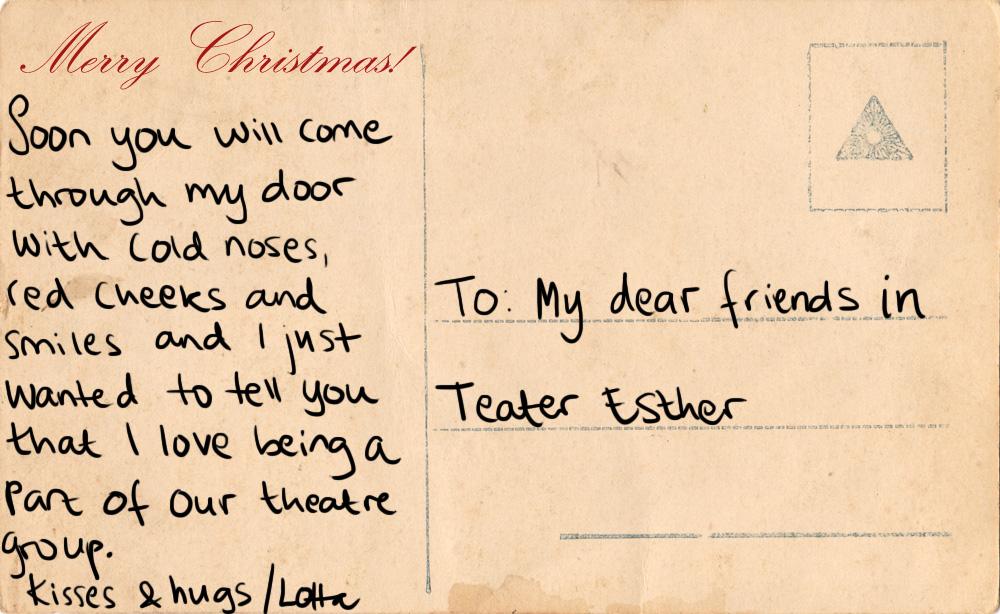 Merry Christmas!
Soon you will come
through my door
with cold noses,
red cheeks and
smiles and I just
wanted to tell you
that I love being a
part of our theatre
group.
Kisses & hugs /Lotta
To: My dear friends in
Teater Esther